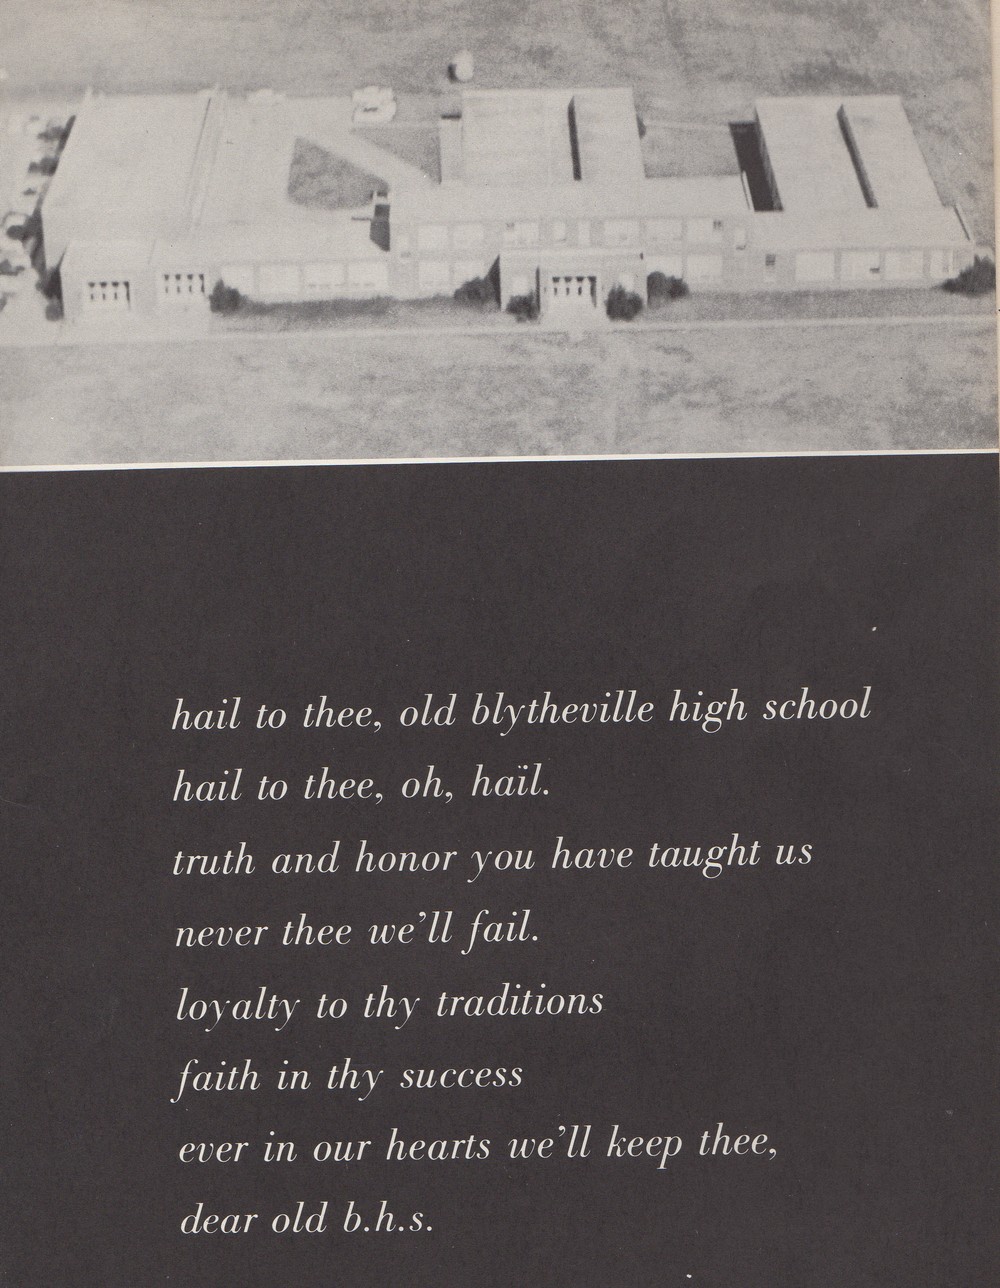 hail to thee, old blytheville high school
hail to thee, oh, hail.
truth and honor you have taught us
never thee we'll fail.
loyalty to thy traditions
faith in thy success
ever in our hearts we'll keep thee,
dear old b.h.s.